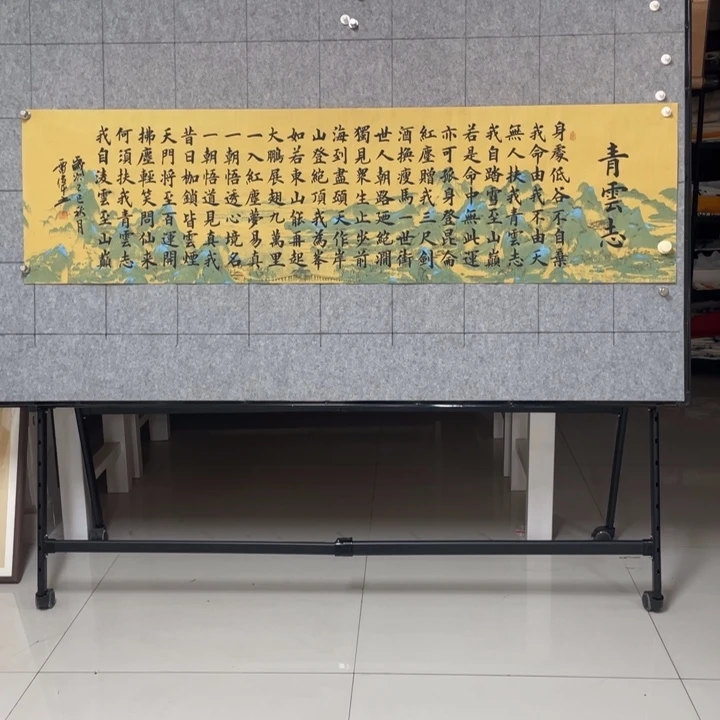 青雲志
身處低谷不自棄
我命由我不由天
無人扶我青雲志
我自踏雪至山巔
若是命中無此運
亦可孤身登昆侖
紅塵贈我三尺劍
酒換瘦馬一世街
世人朝路絕澗
獨見眾生止步前
海到盡頭天作岸
山登絕頂我為峯
如若東山能再起
大鵬展翅九萬里
一入紅塵夢易真
一朝悟透心境名
一朝悟道見真我
昔日枷鎖皆雲煙
天門將至百運開
拂塵輕笑問仙來
何須扶我青雲志
我自凌雲至山巔
歲次乙巳秋月